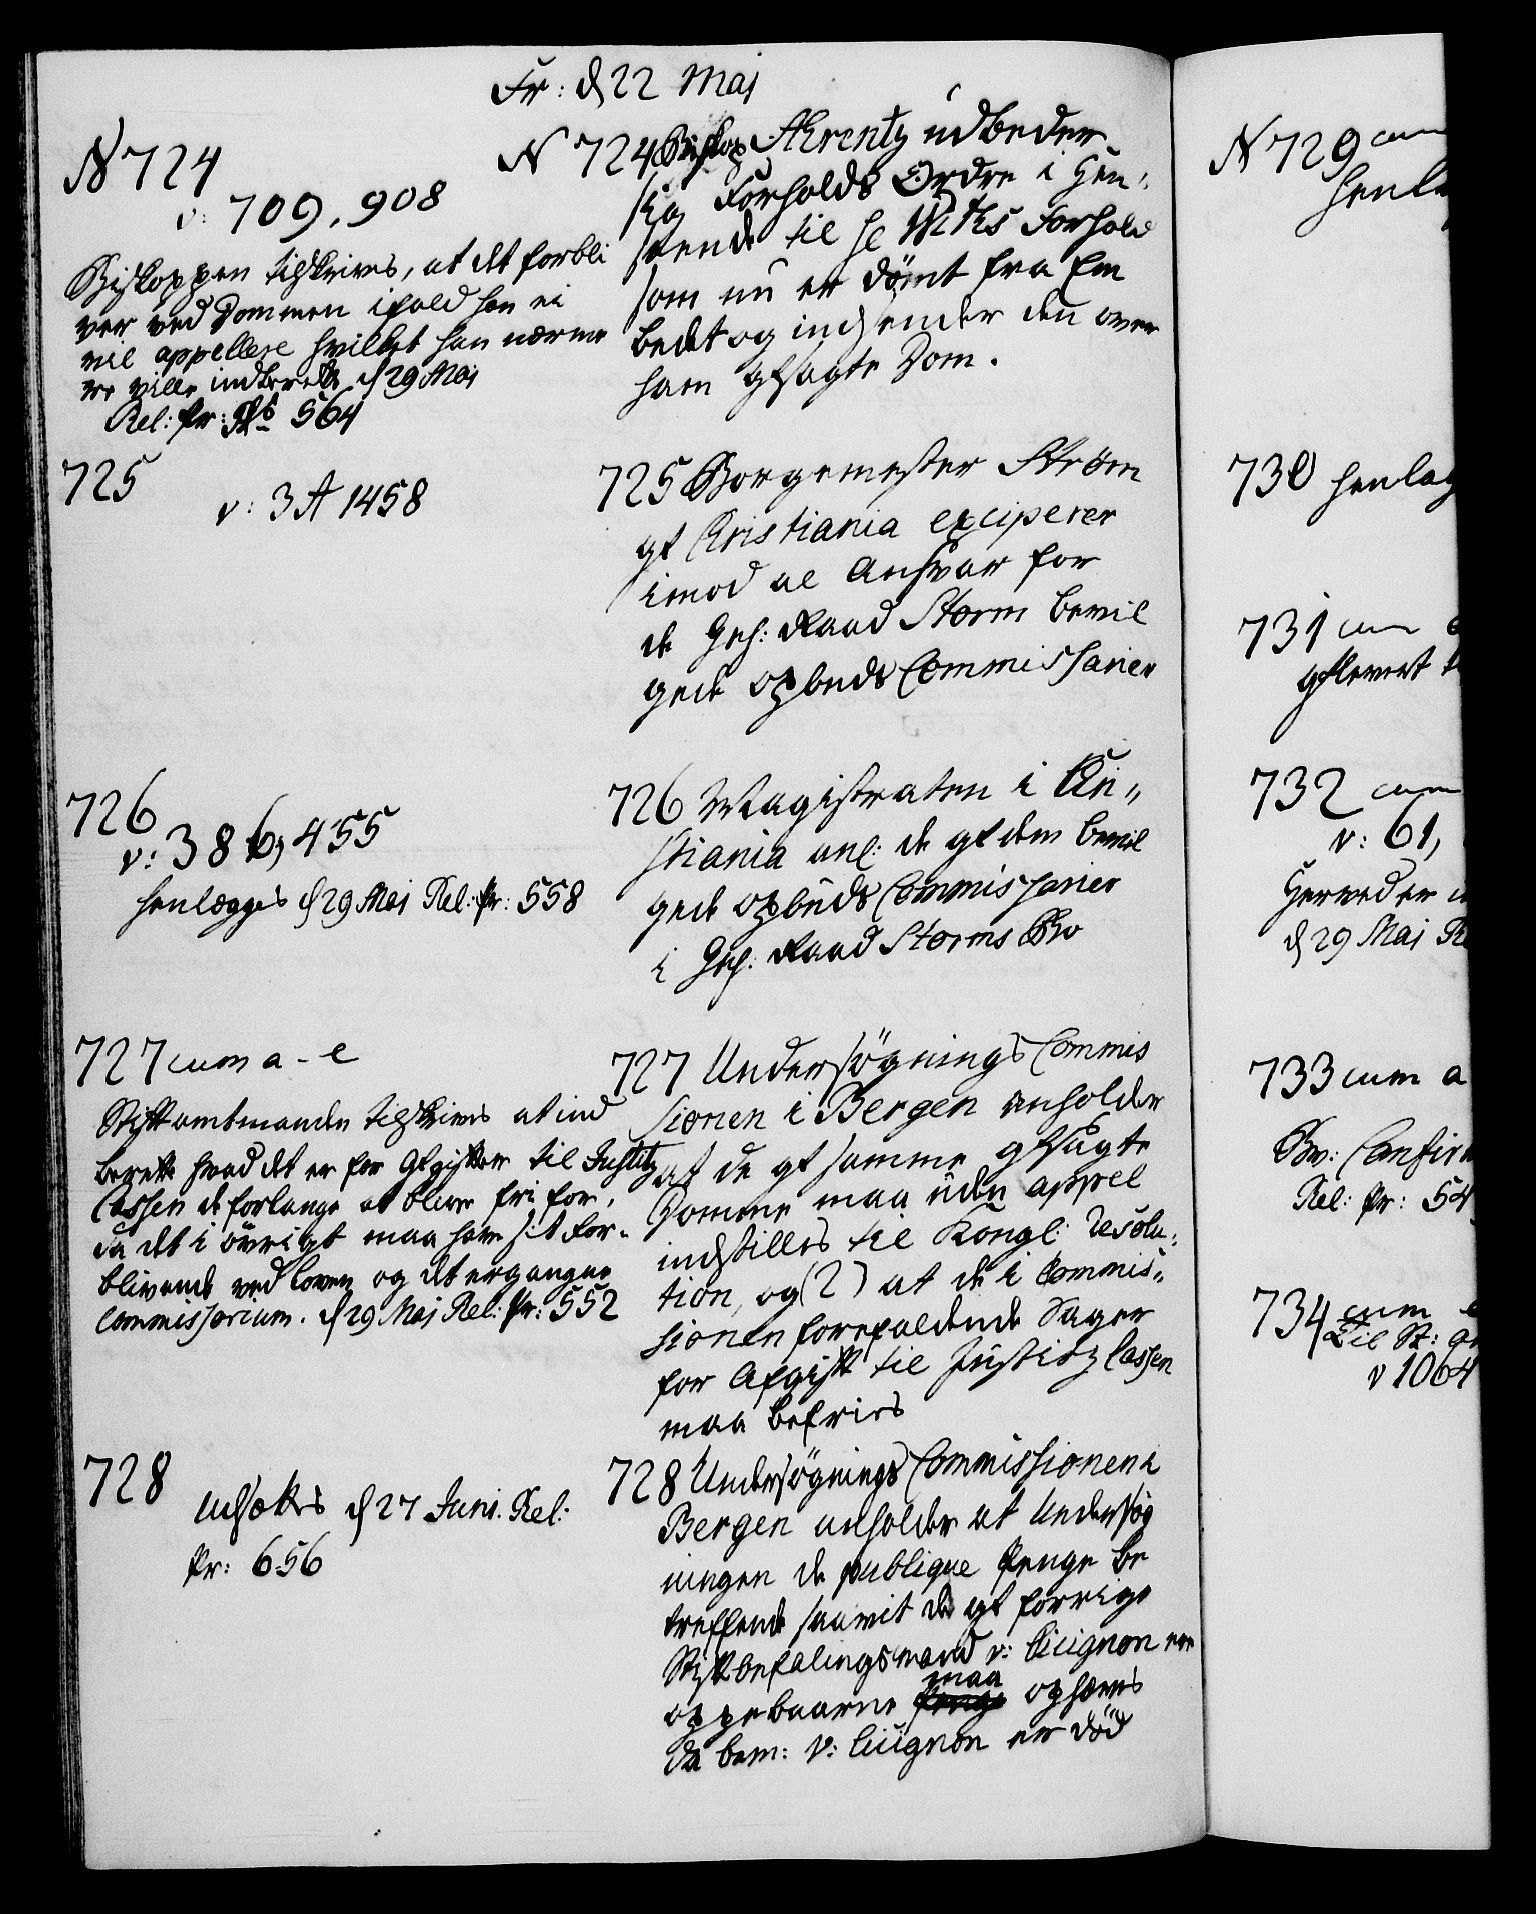 Fr: d 22 Maj
N 724
v: 709, 908
Biskoppen tilskrives, at det forbli
ver ved Dommen ifald han ei
vil appellere hvilket han nærme
re ville indberette d 29 Maj
Rel: Pr: No 564
N 724 Biskop Arentz udbeder
sig Forholds Ordre i Hen,
seende til Hr Forhold
som nu er dömt fra Em
bedet og indsender den over
ham afsagte Dom.
725
v: 3 A 1458
725 Borgemester Strøm
af Kristiania exciperer
imod al Ansvar for
de Geh: Raad Storm bevil
gede opbuds Commissarier
726
v: 386, 455
henlægges d 29 Maj Rel: Pr: 558
726 Magistraten i Kri„
stiania anl: de af dem bevil
gede opbuds Commissarier
i Geh: Raad Storms Bo
727 cum a - e
Stiftamtmanden tilskrives at ind
berette hvad det er for Afgifter til Justitz
Cassen de forlange at blive fri for,
da det i övrigt maa have sit For-
blivende ved Loven og det ergangne
Commissorium. d 29 Maj Rel: Pr: 552
727 Undersøgnings Commis
sionen i Bergen anholder
at de af samme afsagte
Domme maa uden appel
indstilles til Kongl: Resolu„
tion, og (2) at de i Commis„
sionen forefaldende Sager
for Afgift til Justitz Cassen
maa befries
728
Udsættes d 27 Juni. Rel:
Pr: 656
728 Undersøgnings Commissionen i
Bergen anholder at Undersøg
ningen de publique Penge be
treffende saavit de af forrige
Stiftbefalingsmand v: Cicignon ere
maa
oppebaarne Penge ophæves
da bem: v: Cicignon er död
N 729 cum
henl
730 henlag
731 cum
afleveret
732 cum
v: 61,
Herved er
d 29 Maj R
733 cum a
Bev: Confir
Rel: Pr: 54
734 cum
Til St:
v 1064